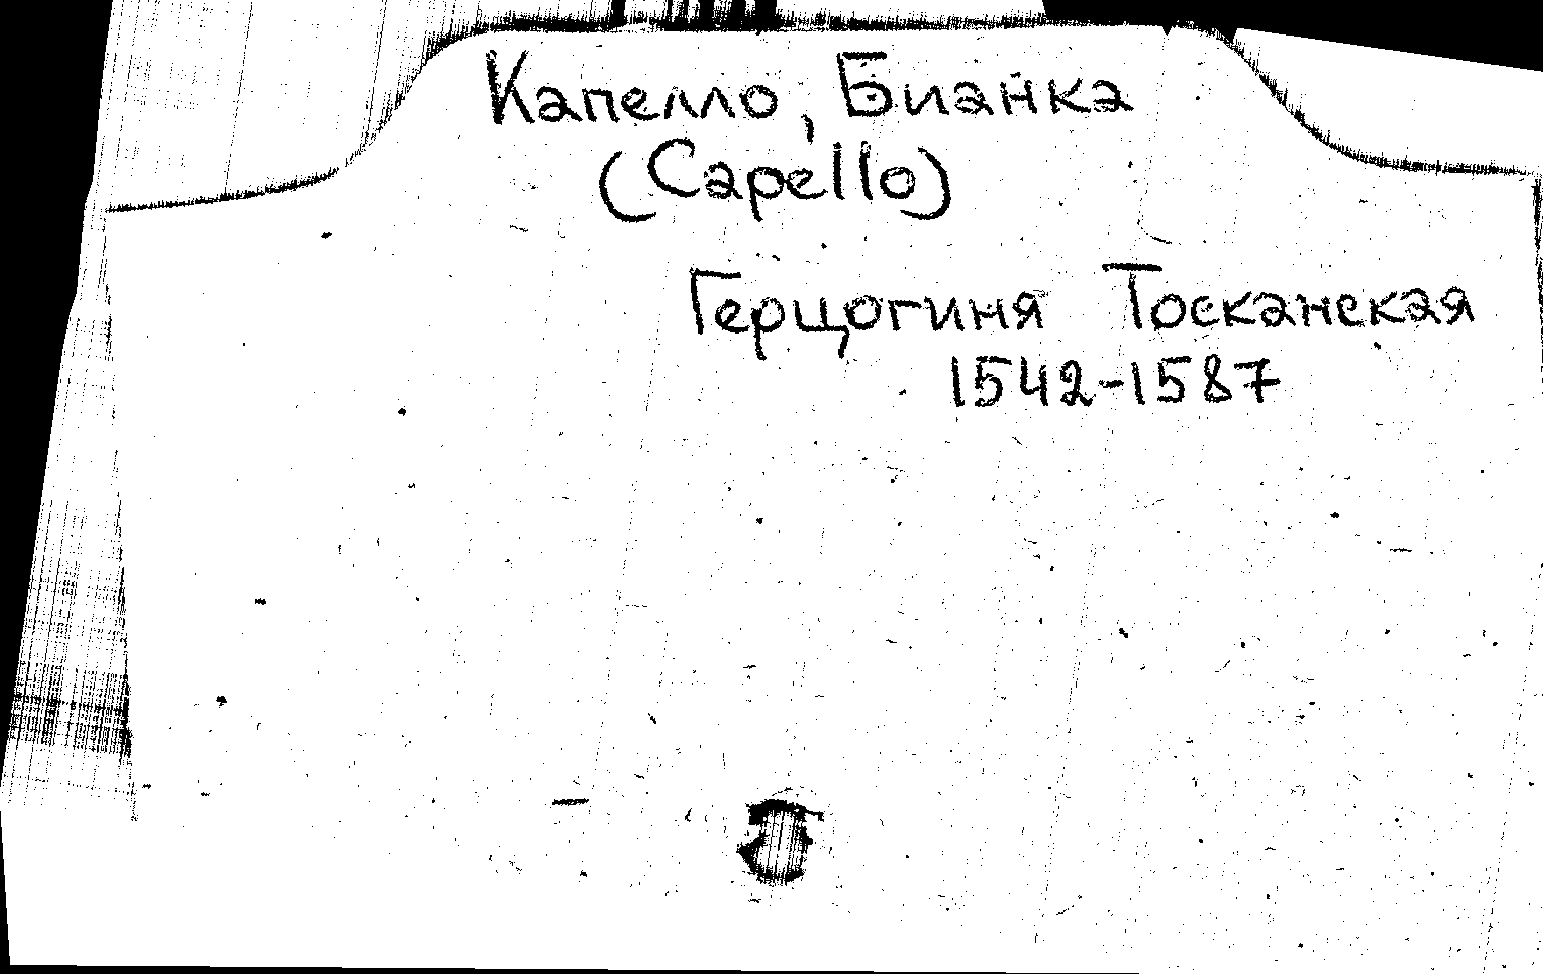 Капелло, Бианка
(Capello)
Герцогиня Тосканская
1542-1587